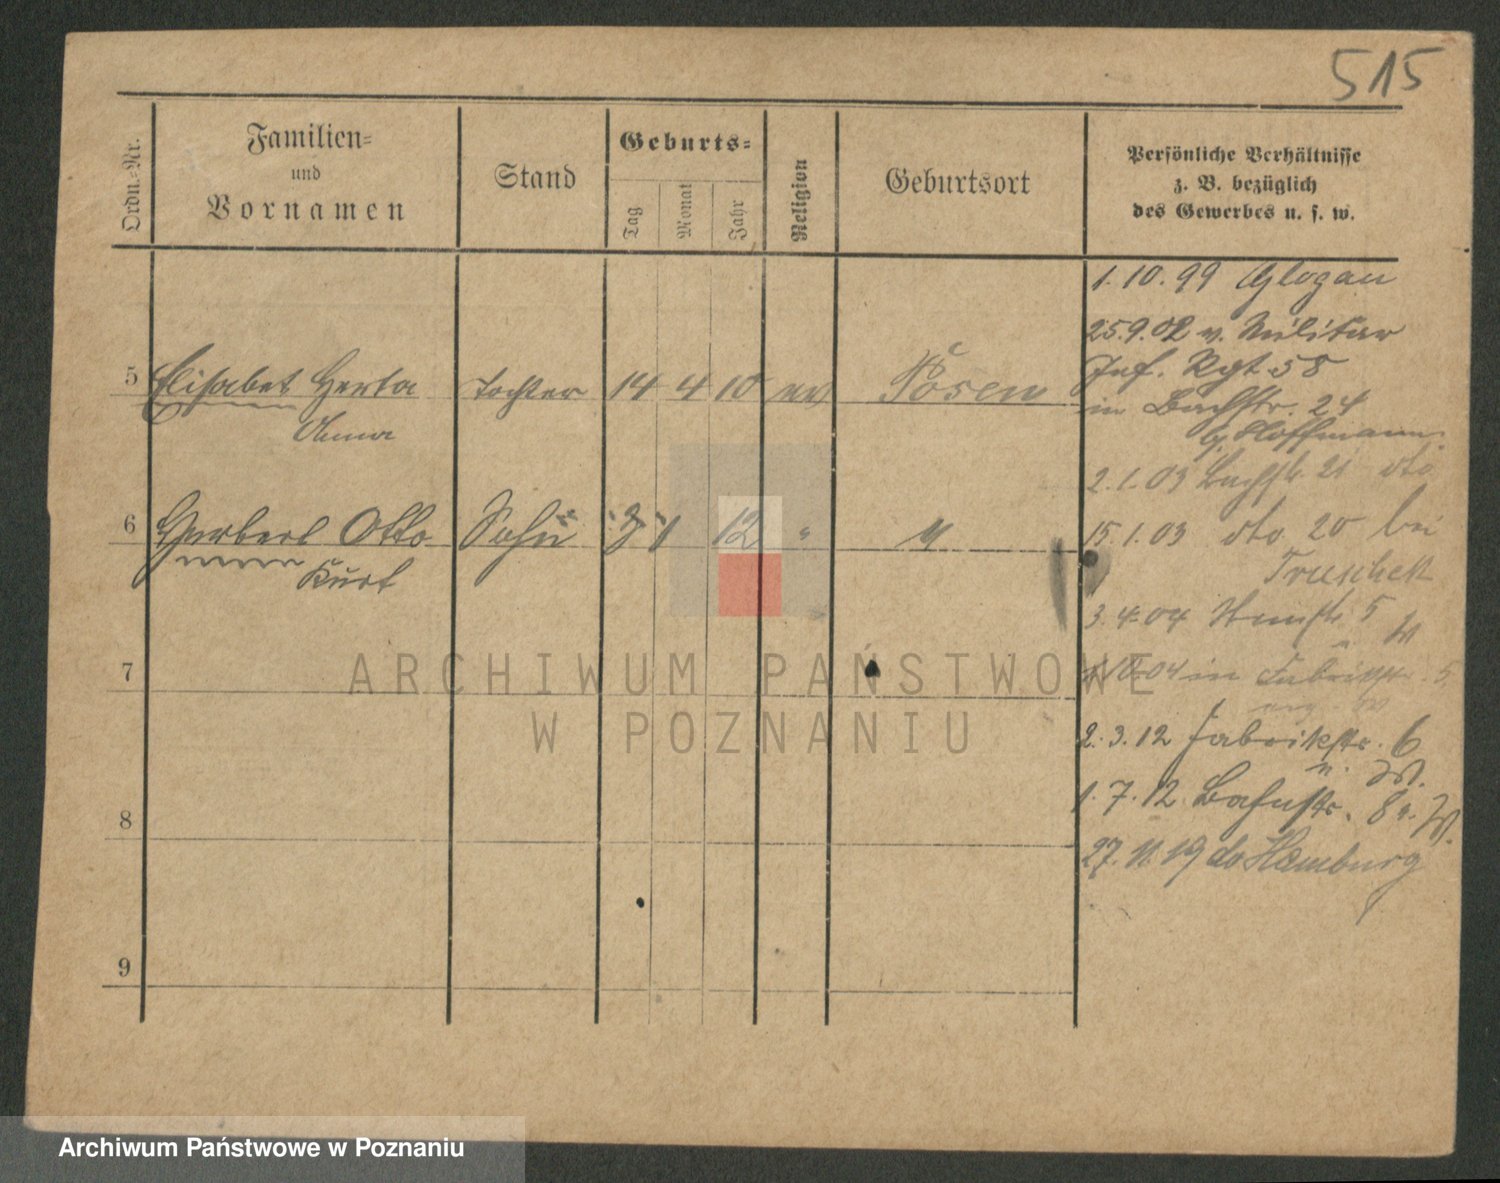 515
Ordn.-Nr.
Familien-
und
Vornamen
Stand
Geburts-
Tag
Monat
Jahr
Religion
Geburtsort
Persönliche Verhältnisse
z. B. bezüglich
des Gewerbes u. s. w.
1.10.99 Glogau
25.9.02 v. Militär
Inf. Rgt 58
5 Elisabet Herta Tochter 14 4 10 ev Posen
in Bachstr. 24
Anna
b/ Hoffmann.
2.1.03 Bachstr. 21 dto
6 Herbert Otto Sohn 1 12 "
Kurt
15.1.03 dto 20 bei
3.4.04 5
W
7
04 in Fabrikstr. 5
2.3.12 Fabrikstr. 6
W.
8
1.7.12 Bahnstr. 8 W.
27.11.19 Hamburg
9
ARCHIWUM PAŃSTWOWE
W POZNANIU
Archiwum Państwowe w Poznaniu